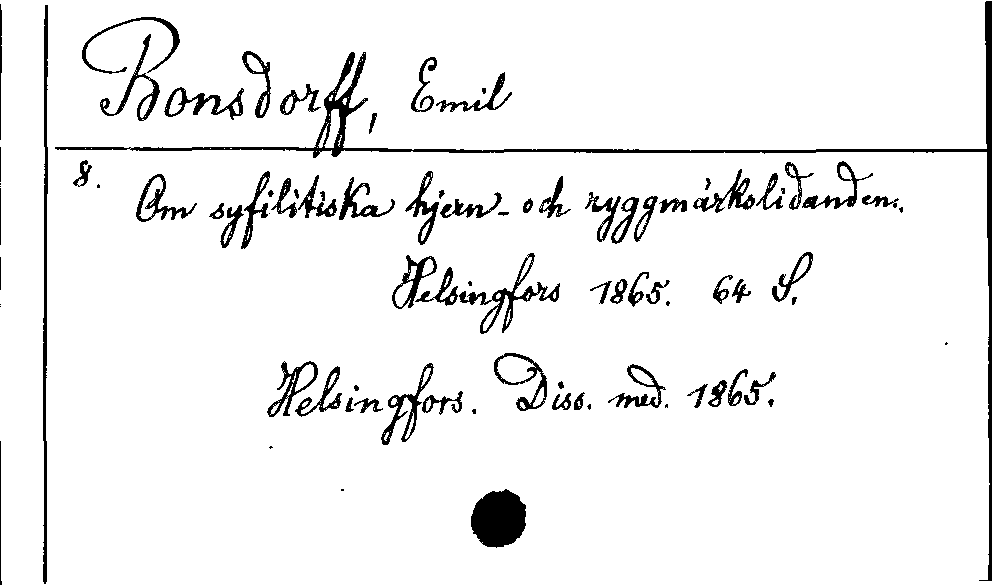 Bonsdorff, Emil
8.
Om syfilitiska hjern- och ryggmärkslidanden.
Helsingfors 1865. 64 S.
Helsingfors. Diss. med. 1865.